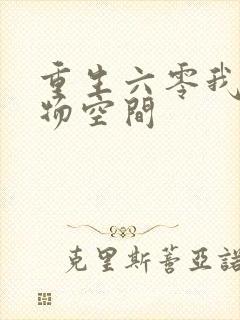 重生六零我
物空間
克里斯蒂亞諾